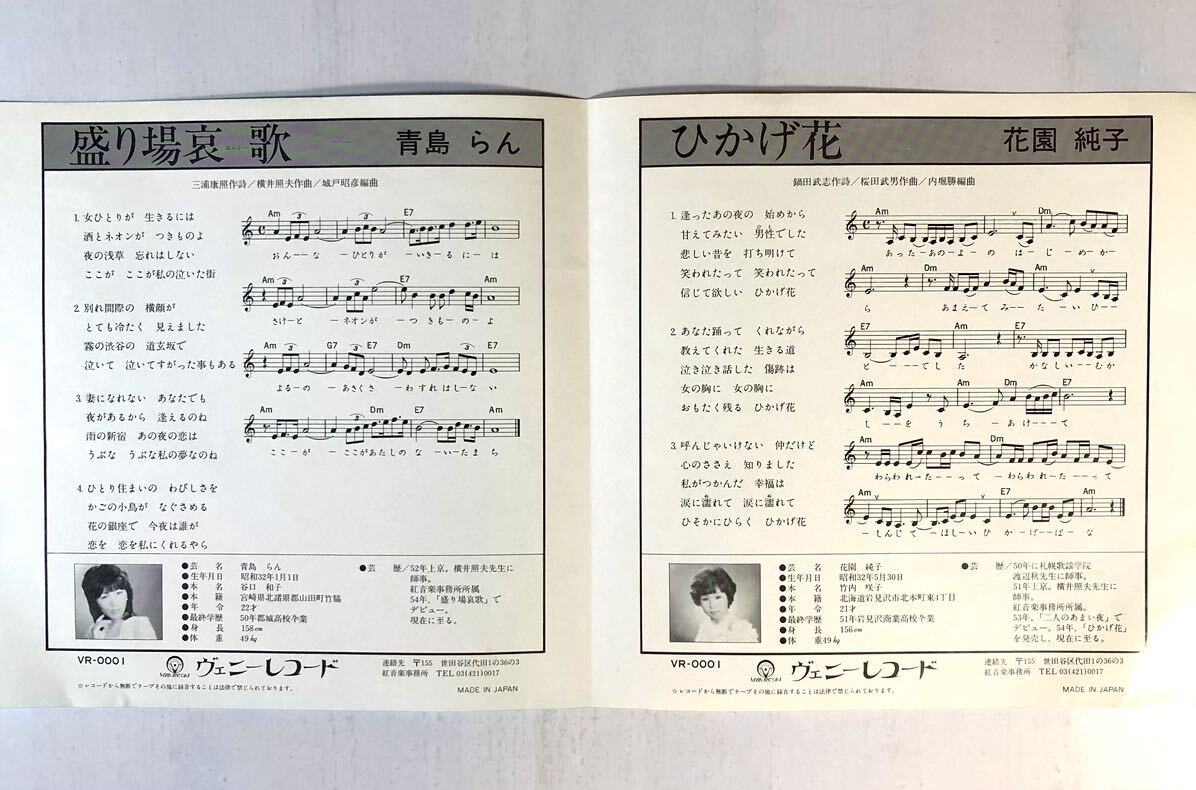 盛り場哀歌
青島 らん
三浦康照作詩/横井照夫作曲/城戸昭彦編曲
1. 女ひとりが 生きるには
酒とネオンが つきものよ
夜の浅草 忘れはしない
ここが ここが私の泣いた街
2. 別れ間際の 横顔が
とても冷たく 見えました
霧の渋谷の 道玄坂で
泣いて 泣いてすがった事もある
3. 妻になれない あなたでも
夜があるから 逢えるのね
雨の新宿 あの夜の恋は
うぶな うぶな私の夢なのね
4. ひとり住まいの わびしさを
かごの小鳥が なぐさめる
花の銀座で 今夜は誰が
恋を 恋を私にくれるやら
Am E7
おんーーな ーひとりが ーいきる にーは
Am E7 Am
さけーと ーネオンが ーつ きもーのーよ
Am G7 E7 Dm E7
よるーの あさくさ ーわすれ はしーな い
Am Dm E7 Am
ここーが ーここがあたしの な ーいたま ち
●芸名 青島 らん
●生年月日 昭和32年1月1日
●本名 谷口 和子
●本籍 宮崎県北諸県郡山田町竹脇
●年令 22才
●最終学歴 50年都城高校卒業
●身長 158cm
●体重 49kg
●芸歴/52年上京。横井照夫先生に
師事。
紅音楽事務所所属
54年、「盛り場哀歌」で
デビュー。
現在に至る。
VR-0001
ヴェニーレコード
連絡先 〒155 世田谷区代田1の36の3
紅音楽事務所 TEL 03(421)0017
☆レコードから無断でテープその他に録音することは法律で禁じられております。
MADE IN JAPAN
ひかげ花
花園 純子
鍋田武志作詩/桜田武男作曲/内堀勝編曲
1. 逢ったあの夜の 始めから
甘えてみたい 男性でした
悲しい昔を 打ち明けて
笑われたって 笑われたって
信じて欲しい ひかげ花
2. あなた踊って くれながら
教えてくれた 生きる道
泣き泣き話した 傷跡は
女の胸に 女の胸に
おもたく残る ひかげ花
3. 呼んじゃいけない 仲だけど
心のささえ 知りました
私がつかんだ 幸福は
涙に濡れて 涙に濡れて
ひそかにひらく ひかげ花
Am Dm
あったーあのーよーの はーじーめーかー
Am Dm Am
ら あまえーて みーーたーいひーー
E7 Am E7
とーーーでした かなしいーーむか
Am E7 Am Dm E7
しーーを うちーあけーーーて
Am Dm
わらわれーたーーーって ーわらわれたーーーって
Am E7 Am
ーしんじてーほーしいーひ かーげーーばーな
●芸名 花園 純子
●生年月日 昭和32年5月30日
●本名 竹内 咲子
●本籍 北海道岩見沢市北本町東4丁目
●年令 21才
●最終学歴 51年岩見沢商業高校卒業
●身長 156cm
●体重49kg
●芸歴/50年に札幌歌謡学院
渡辺秋先生に師事。
51年上京。横井照夫先生に
師事。
紅音楽事務所所属。
53年、「二人のあまい夜」で
デビュー。54年、「ひかげ花」
を発売し、現在に至る。
VR-0001
ヴェニーレコード
連絡先 〒155 世田谷区代田1の36の3
紅音楽事務所 TEL 03(421)0017
☆レコードから無断でテープその他に録音することは法律で禁じられております。
MADE IN JAPAN